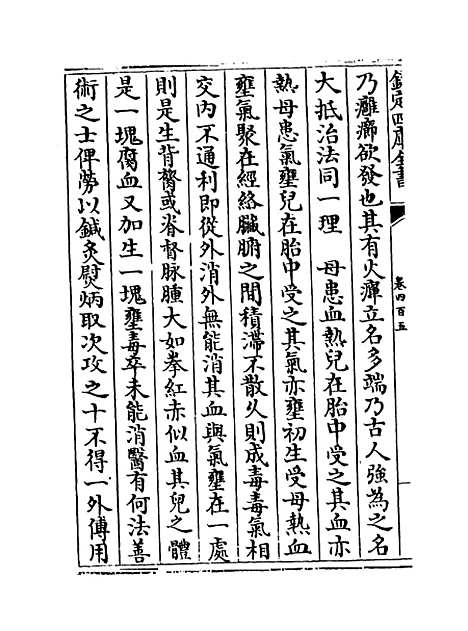 欽定四庫全書
卷四百五
乃癰癤欲發也其有火癉立名多端乃古人強為之名
大抵治法同一理　母患血熱兒在胎中受之其血亦
熱母患氣壅兒在胎中受之其氣亦壅初生受母熱血
壅氣聚在經絡臟腑之間積滯不散久則成毒毒氣相
交内不通利即從外消外無能消其血與氣壅在一處
則是生背膂或脊督脉腫大如拳紅赤似血其兒之體
是一塊腐血又加生一塊壅毒卒未能消醫有何法善
術之士俾勞以鍼灸熨炳取次攻之十不得一外傅用